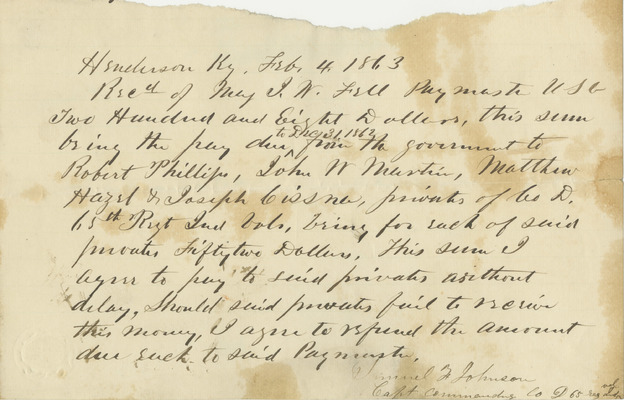 Henderson Ky, Feb 4, 1863
Recd of Maj J. W. Fell Paymaste U S A
Two Hundred and Eight Dollars, this sum
to Dec 31, 1862
being the pay due from the government to
Robert Phillips, John W Martin, Matthew
Hazel & Joseph Cissna, privates of Co D.
65th Regt Ind Vols, being for each of said
privates Fifty two Dollars. This sum I
agree to pay to said privates without
delay, Should said privates fail to receive
this money, I agree to refund the amount
due each to said Paymaste.
Samuel F Johnson
Capt Commanding Co D 65 Reg